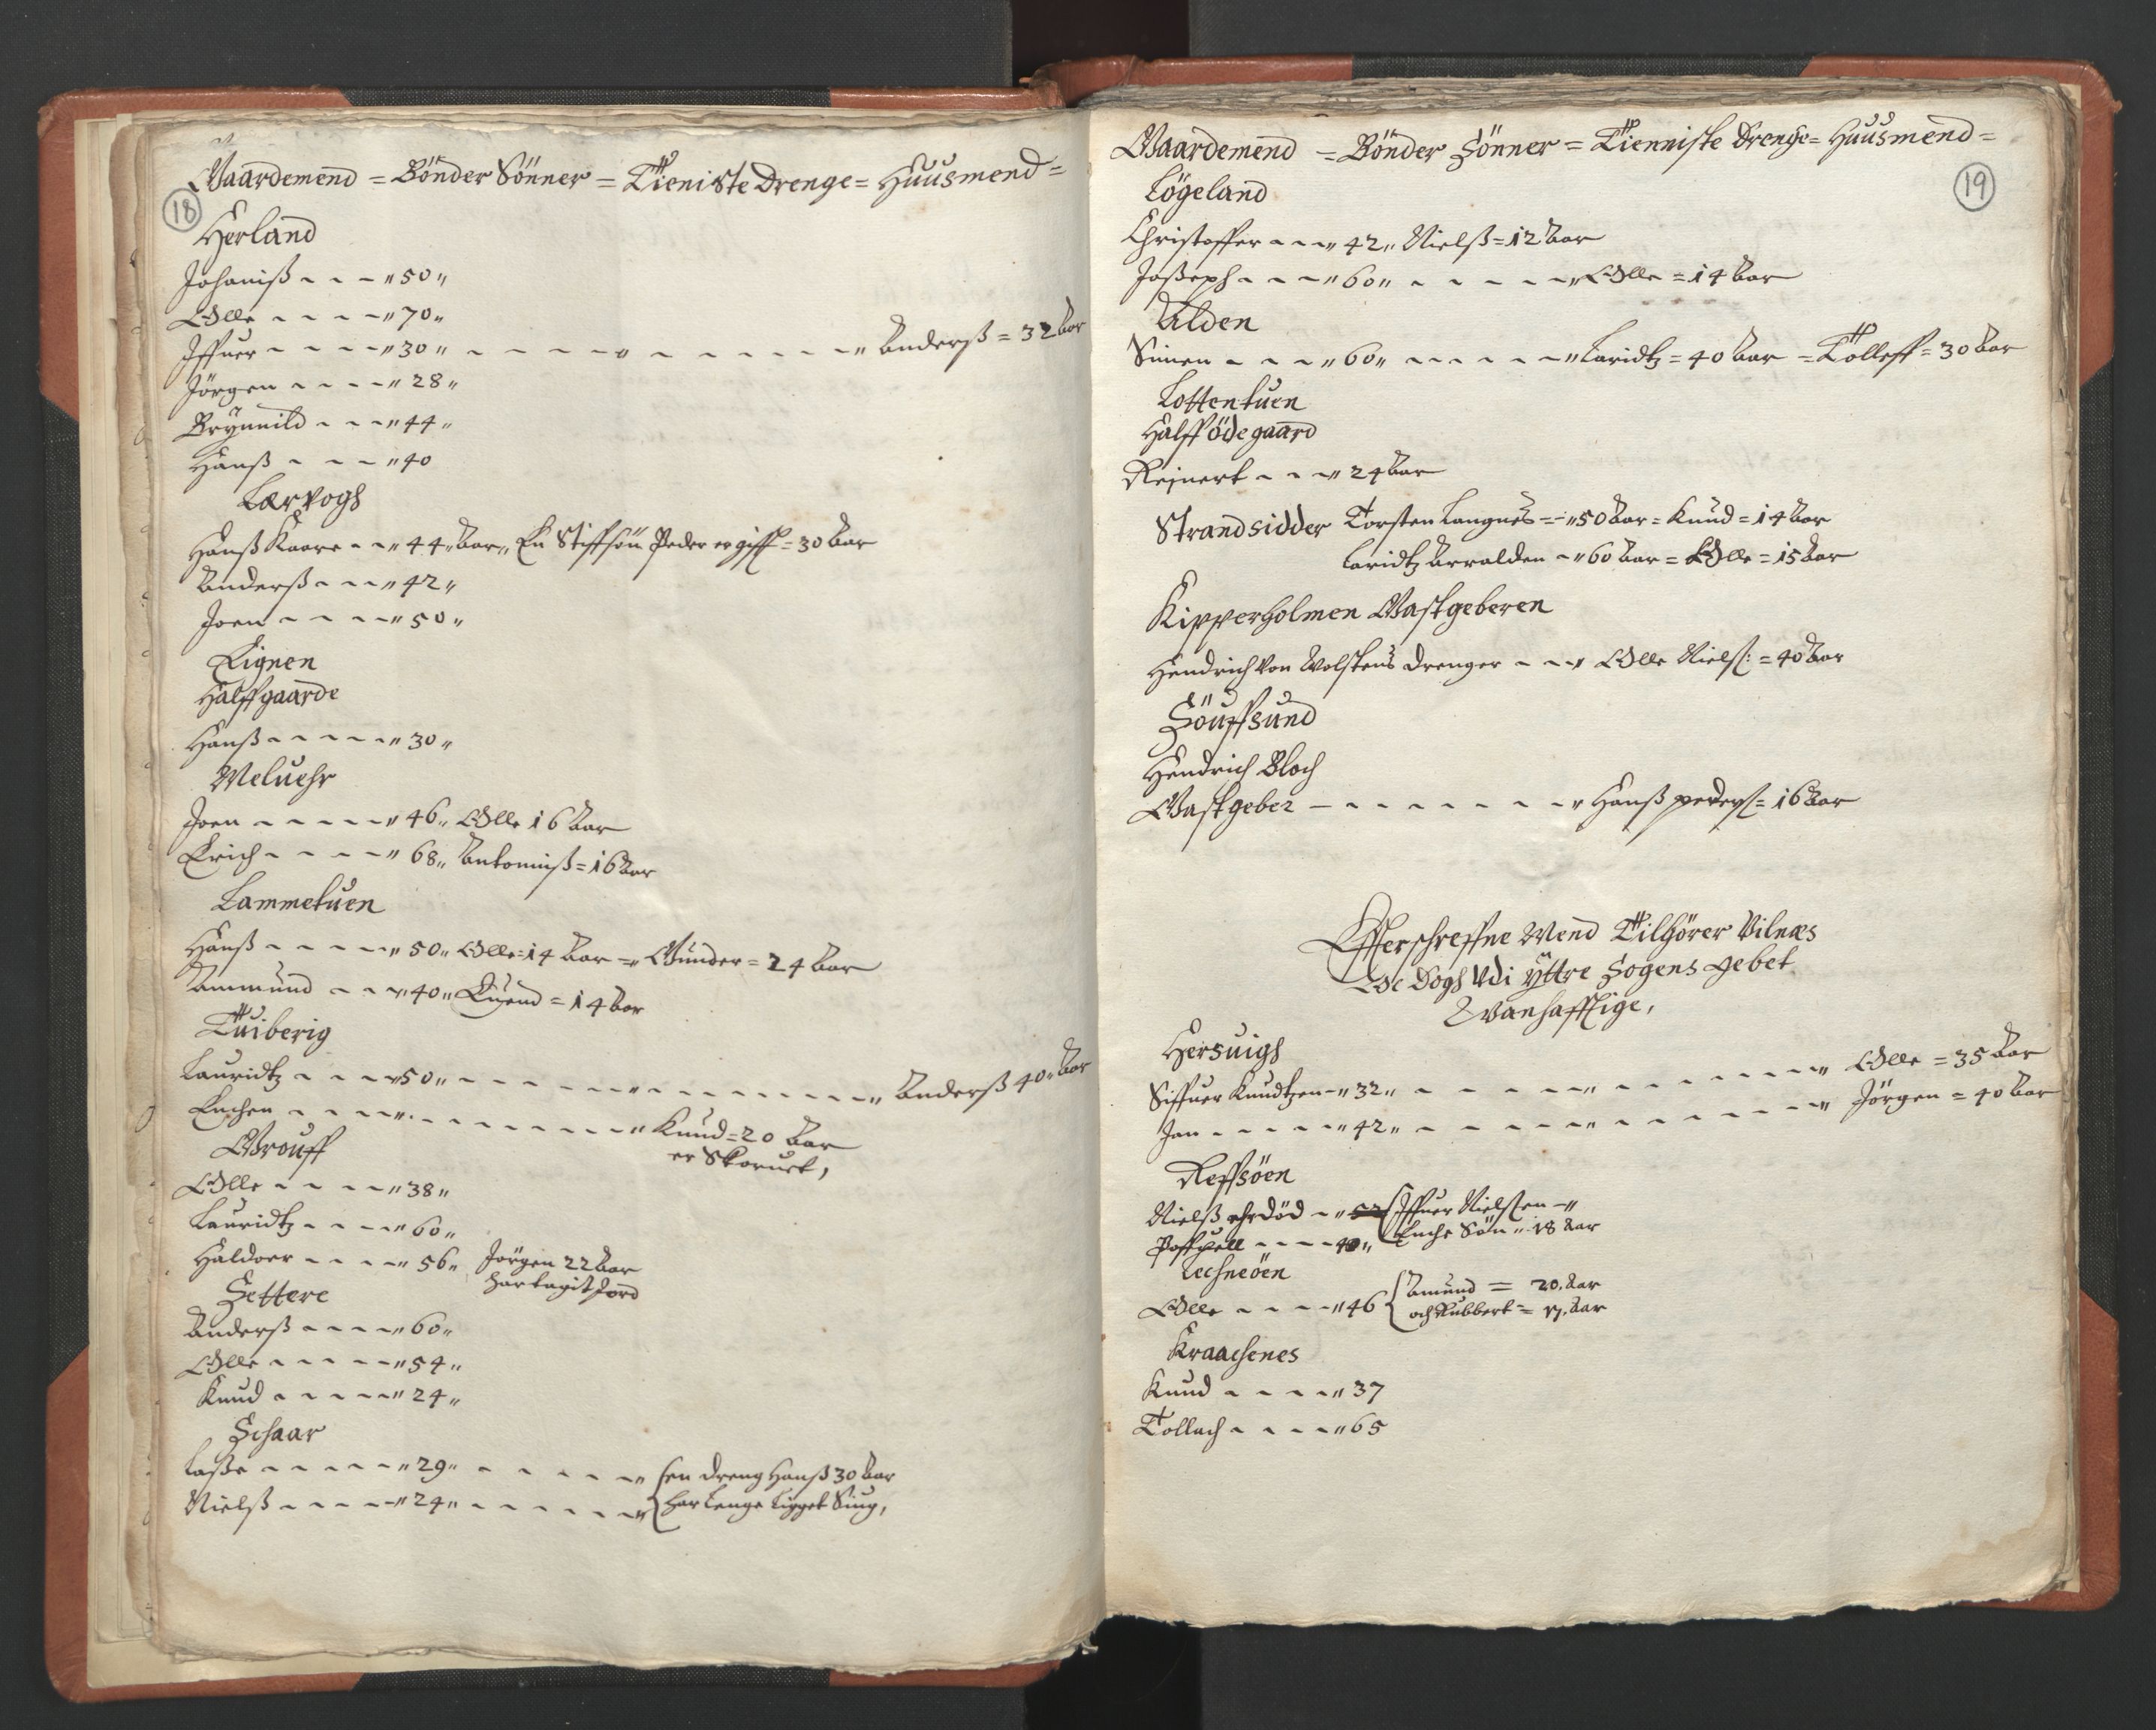 Gaardemend = Bönder Sönner = Tieniste Drenge = Huusmend =
18
Herland
Johaniß - - - " 50 "
Olle - - - - " 70 "
Iffuer - - - - " 30 " - - - - - " - - - - - - " Anderß = 32 Aar
Jörgen - - - - " 28 "
Brynnild - - - " 44 "
Hanß - - - - " 40
Lervogh
Hanß Kaare - - " 44 " Aar " En Stiffsön Peder er gifft = 30 Aar
Anderß - - - " 42 "
Joen - - - - " 50 "
Lignen
Halffgaarde
Hanß - - - - - " 30 "
Meluehr
Joen - - - - - " 46 " Olle 16 Aar
Erich - - - - " 68 " Antoniuß = 16 Aar
Lammetuen
Hanß - - - - - " 50 " Olle = 14 Aar - " Gunder = 24 Aar
Aammund - - " 40 " Euend = 14 Aar
Tuiberig
Lauridtz - - - - " 50 " - - - - - - " - - - - - - - " Anderß 40 " Aar
Enchen - - - - " - - - - - - - - " Knud = 20 Aar
er Skoruet,
Grouff
Olle - - - - - " 38 "
Lauridtz - - - - " 60 "
Haldoer - - - - " 56 " Jörgen 22 Aar
har tagit Jord
Settere
Anderß - - - - " 60 "
Olle - - - - - " 54 "
Knud - - - - - " 24 "
Schaar
Laße - - - - - " 29 " - - - - - - " en dreng Hanß 30 Aar
Nielß - - - - - " 24 " - - - - - - " har lenge ligget Siug,
Gaardemend = Bönder Sönner = Tienniste Drenge = Huusmend =
19
Lögeland
Christoffer - - - " 42 " Nielß = 12 Aar
Joßeph - - - - " 60 " - - - - - " Olle = 14 Aar
Alden
Simen - - - - " 60 " - - - - - - " Laridtz = 40 Aar = Tolleff = 30 Aar
Lottentuen
Halff öde gaard
Rejnert - - - " 24 Aar
Strandsidder Torsten Langnes = - " 50 Aar = Knud = 14 Aar
Laridtz Arralden - " 60 Aar = Olle = 15 Aar
Kipperholmen Gastgeberen
Hendrich Von Wolstens Drenger - - - " Olle Nielß: = 40 Aar
Söuffsund
Hendrich Bloch
Gastgeber - - - - - - - - - " Hanß Perderß = 16 Aar
Effterschreffne Mend Tilhörer Vilnæs
Oc Dogh Udi Yttre Sogens gebet
Vanhafftige,
Hersuigh
Siffuer Knudtzen - " 32 " - - - - - " - - - - - - " Olle = 35 Aar
Jan - - - - - " 42 " - - - - - " - - - - - - " Jörgen = 40 Aar
Reffsöen
Nielß ehr död - " 52 Iffuer Nielßen - "
Poffuell - - - - 40 " Enche Sön " 18 Aar
Lechneöen
Olle - - - - " 46 Amund = 20. Aar
och Rubbert = 17. Aar
Kraachenes
Knud - - - - " 37
Tollach - - - - " 65